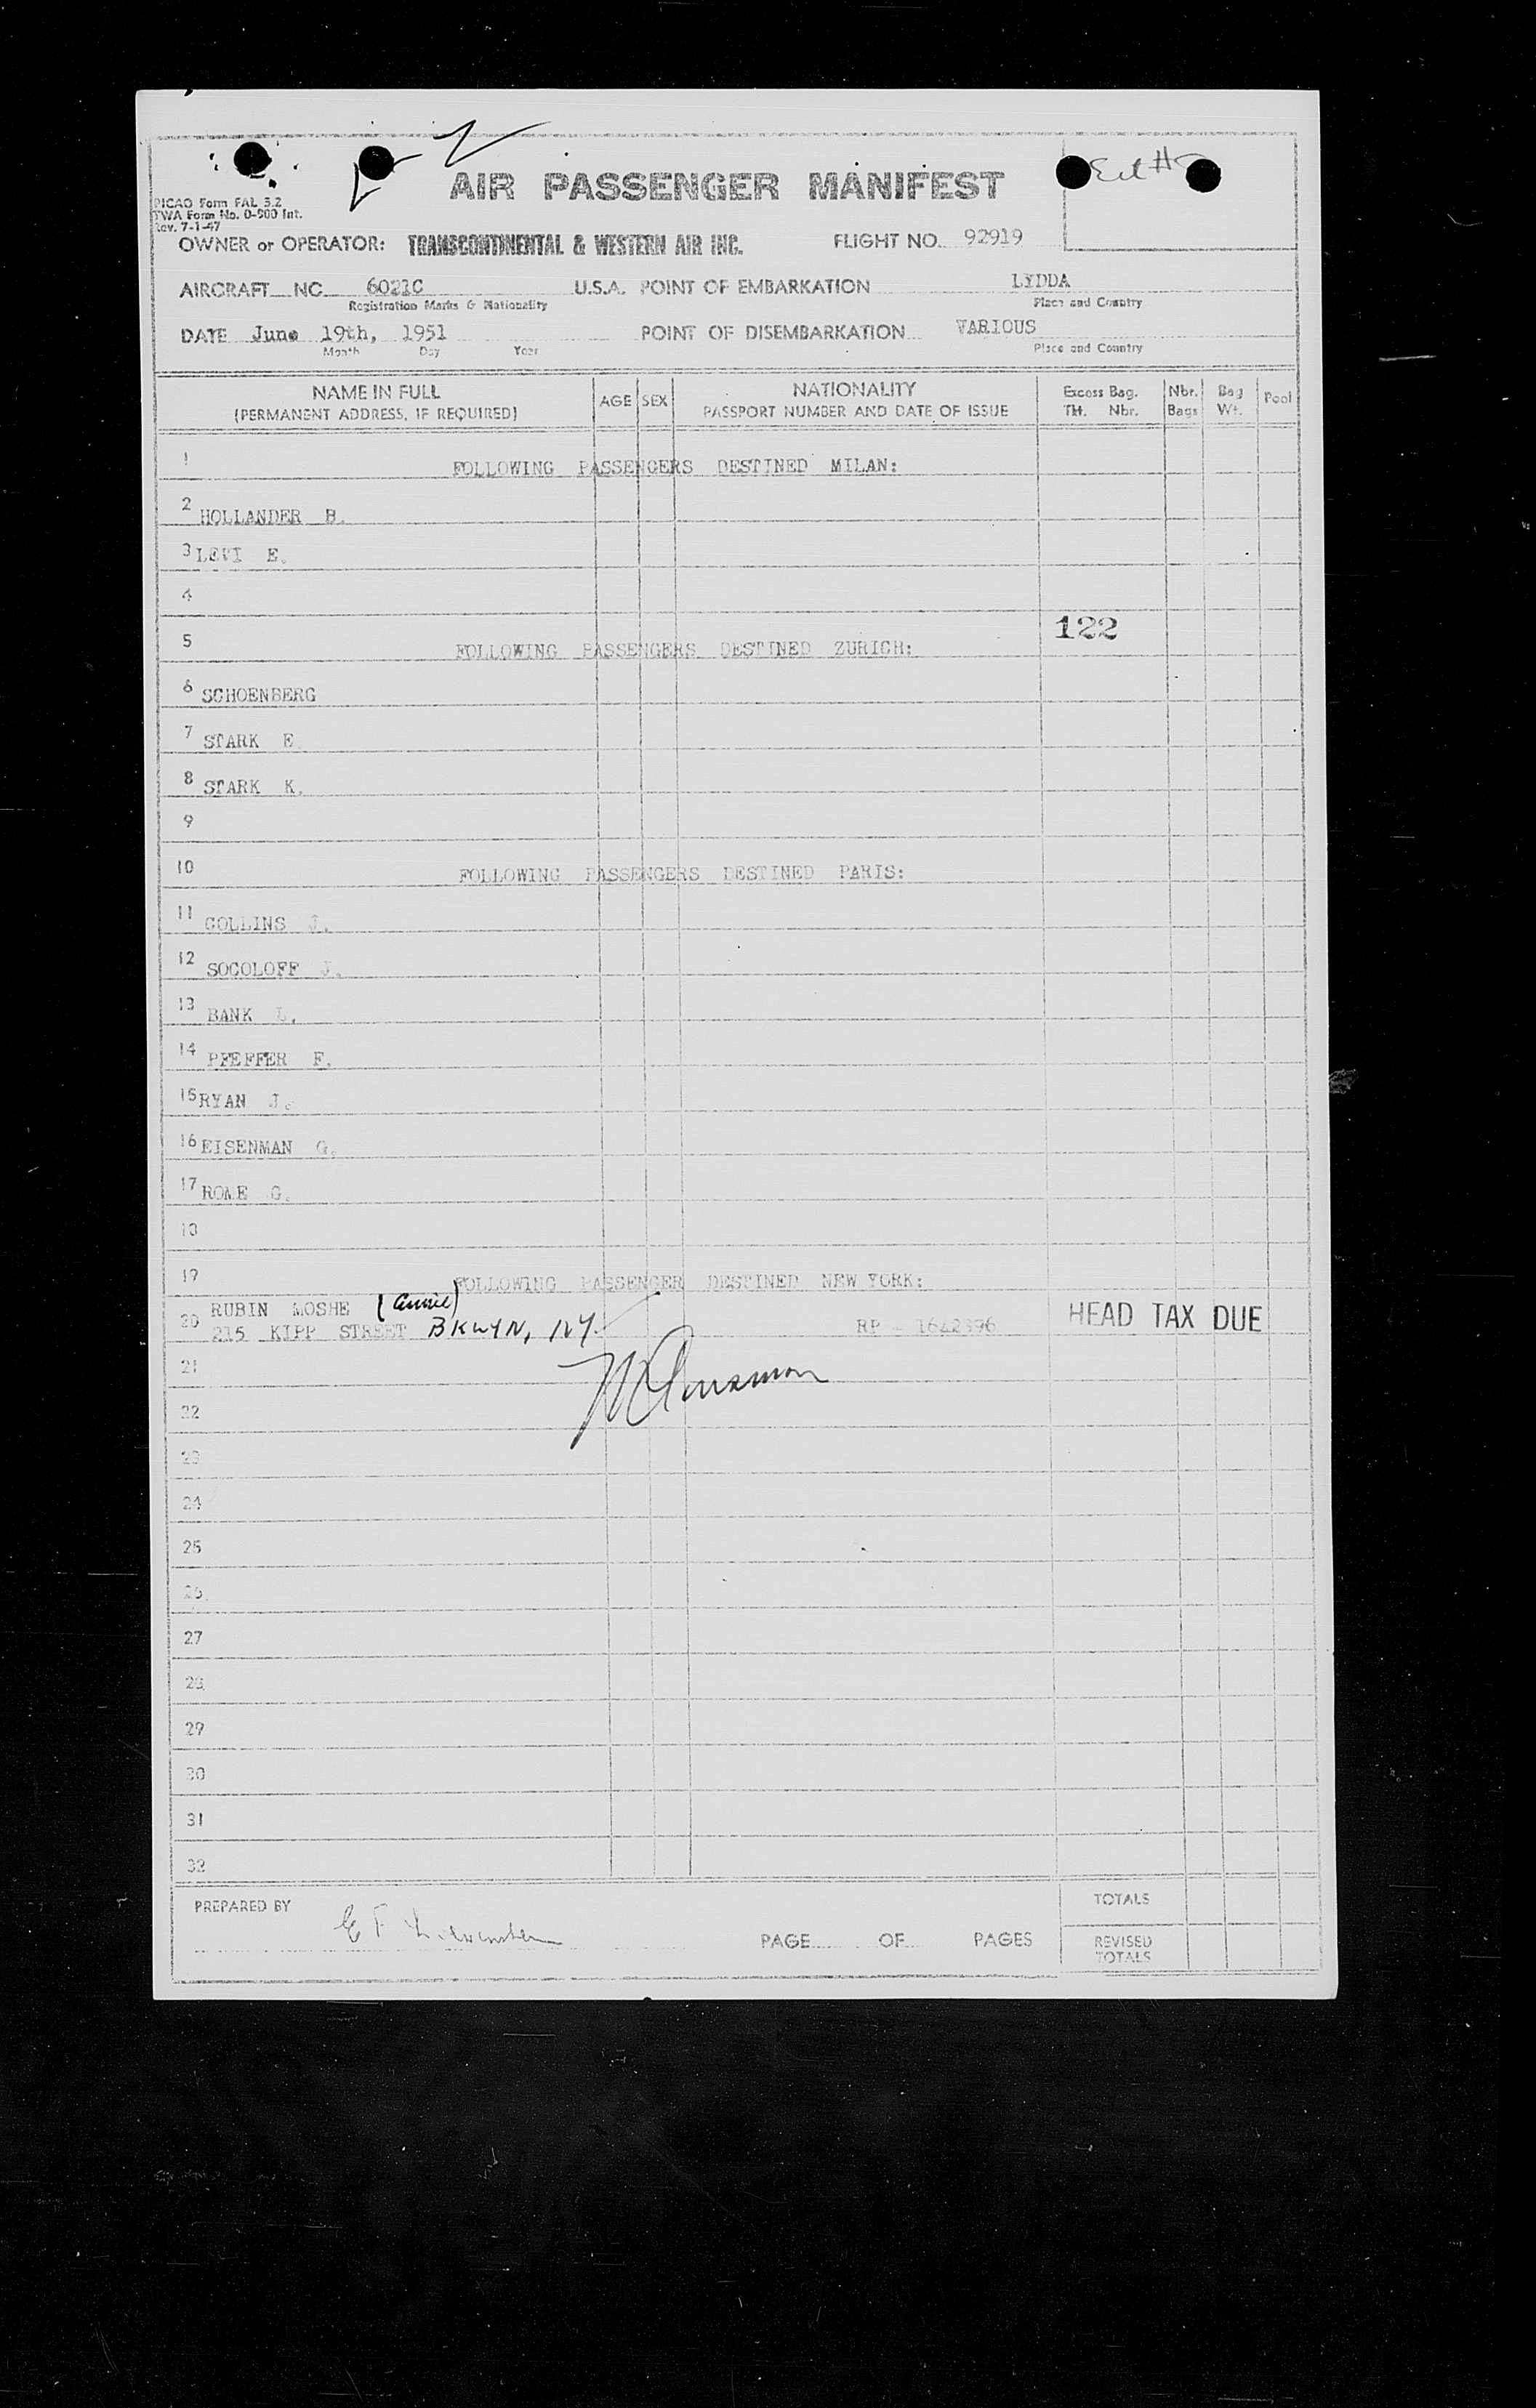 Ext #
AIR PASSENGER MANIFEST
PICAO Form FAL 3.2
TWA Form No. O-900 Int.
Rev. 7-1-47
OWNER or OPERATOR: TRANSCONTINENTAL & WESTERN AIR INC. FLIGHT NO. 92919
AIRCRAFT NC 6021C U.S.A. POINT OF EMBARKATION LYDDA
Registration Marks & Nationality Place and Country
DATE June 19th, 1951 POINT OF DISEMBARKATION VARIOUS
Month Day Year Place and Country
NAME IN FULL AGE SEX NATIONALITY Excess Bag. Nbr. Bag Pool
(PERMANENT ADDRESS, IF REQUIRED) PASSPORT NUMBER AND DATE OF ISSUE Tkt. Nbr. Bags Wt.
1 FOLLOWING PASSENGERS DESTINED MILAN:
2 HOLLANDER B.
3 LEVI E.
4
122
5 FOLLOWING PASSENGERS DESTINED ZURICH:
6 SCHOENBERG
7 STARK E.
8 STARK K.
9
10 FOLLOWING PASSENGERS DESTINED PARIS:
11 COLLINS J.
12 SOCOLOFF J.
13 BANK L.
14 PFEFFER F.
15 RYAN J.
16 EISENMAN G.
17 ROME G.
18
19 FOLLOWING PASSENGER DESTINED NEW YORK:
20 RUBIN MOSHE (Annie) HEAD TAX DUE
215 KIPP STREET BKLYN, NY. RP - 1642396
21
22
23
24
25
26
27
28
29
30
31
32
PREPARED BY TOTALS
PAGE OF PAGES REVISED
TOTALS